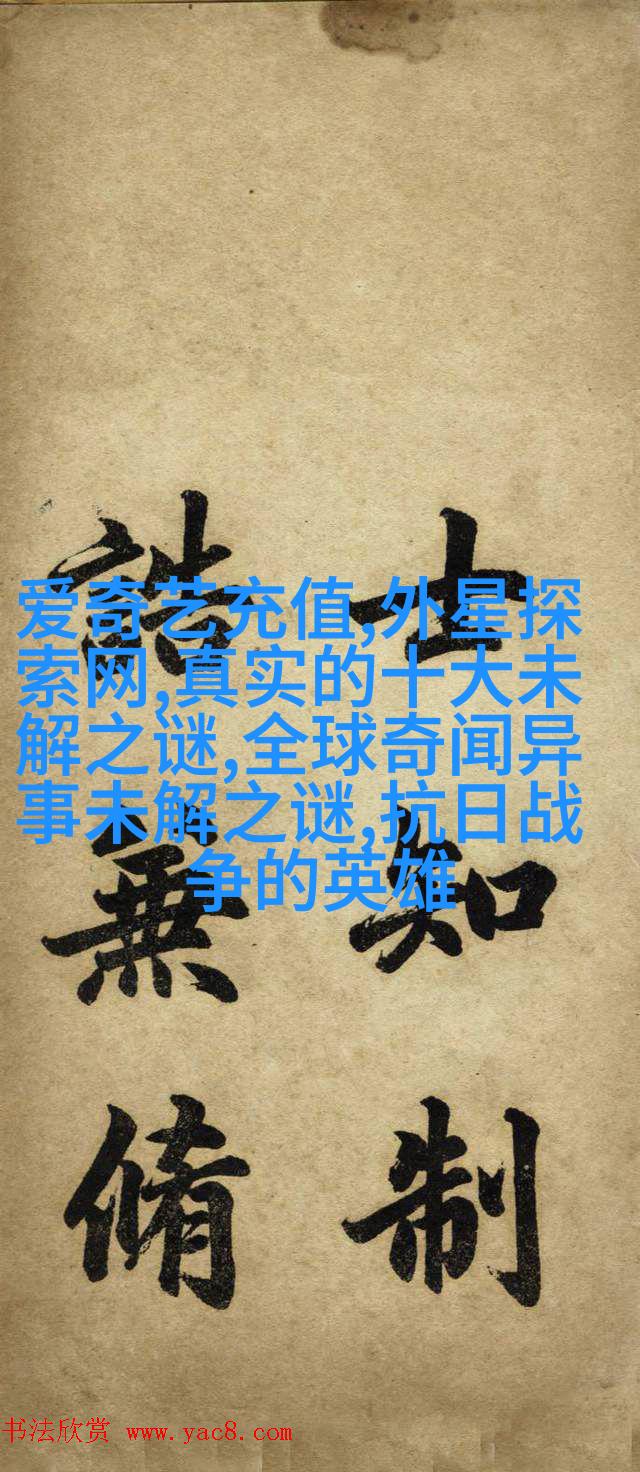 士知制
誥兼脩
爱奇艺充值,外星探
索网,真实的十大未
解之谜,全球奇闻异
事未解之谜,抗日战
争的英雄
书法欣赏 www.yac8.com